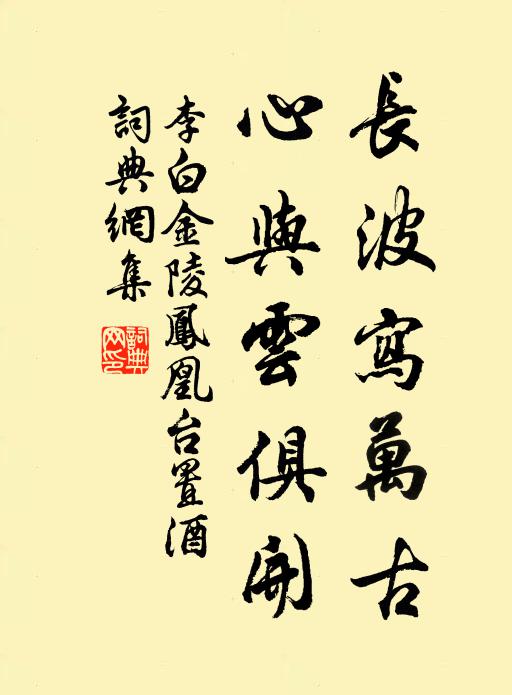 長波寫萬古
心與雲俱開
李白金陵鳳凰台置酒
詞典網集
詞典網印